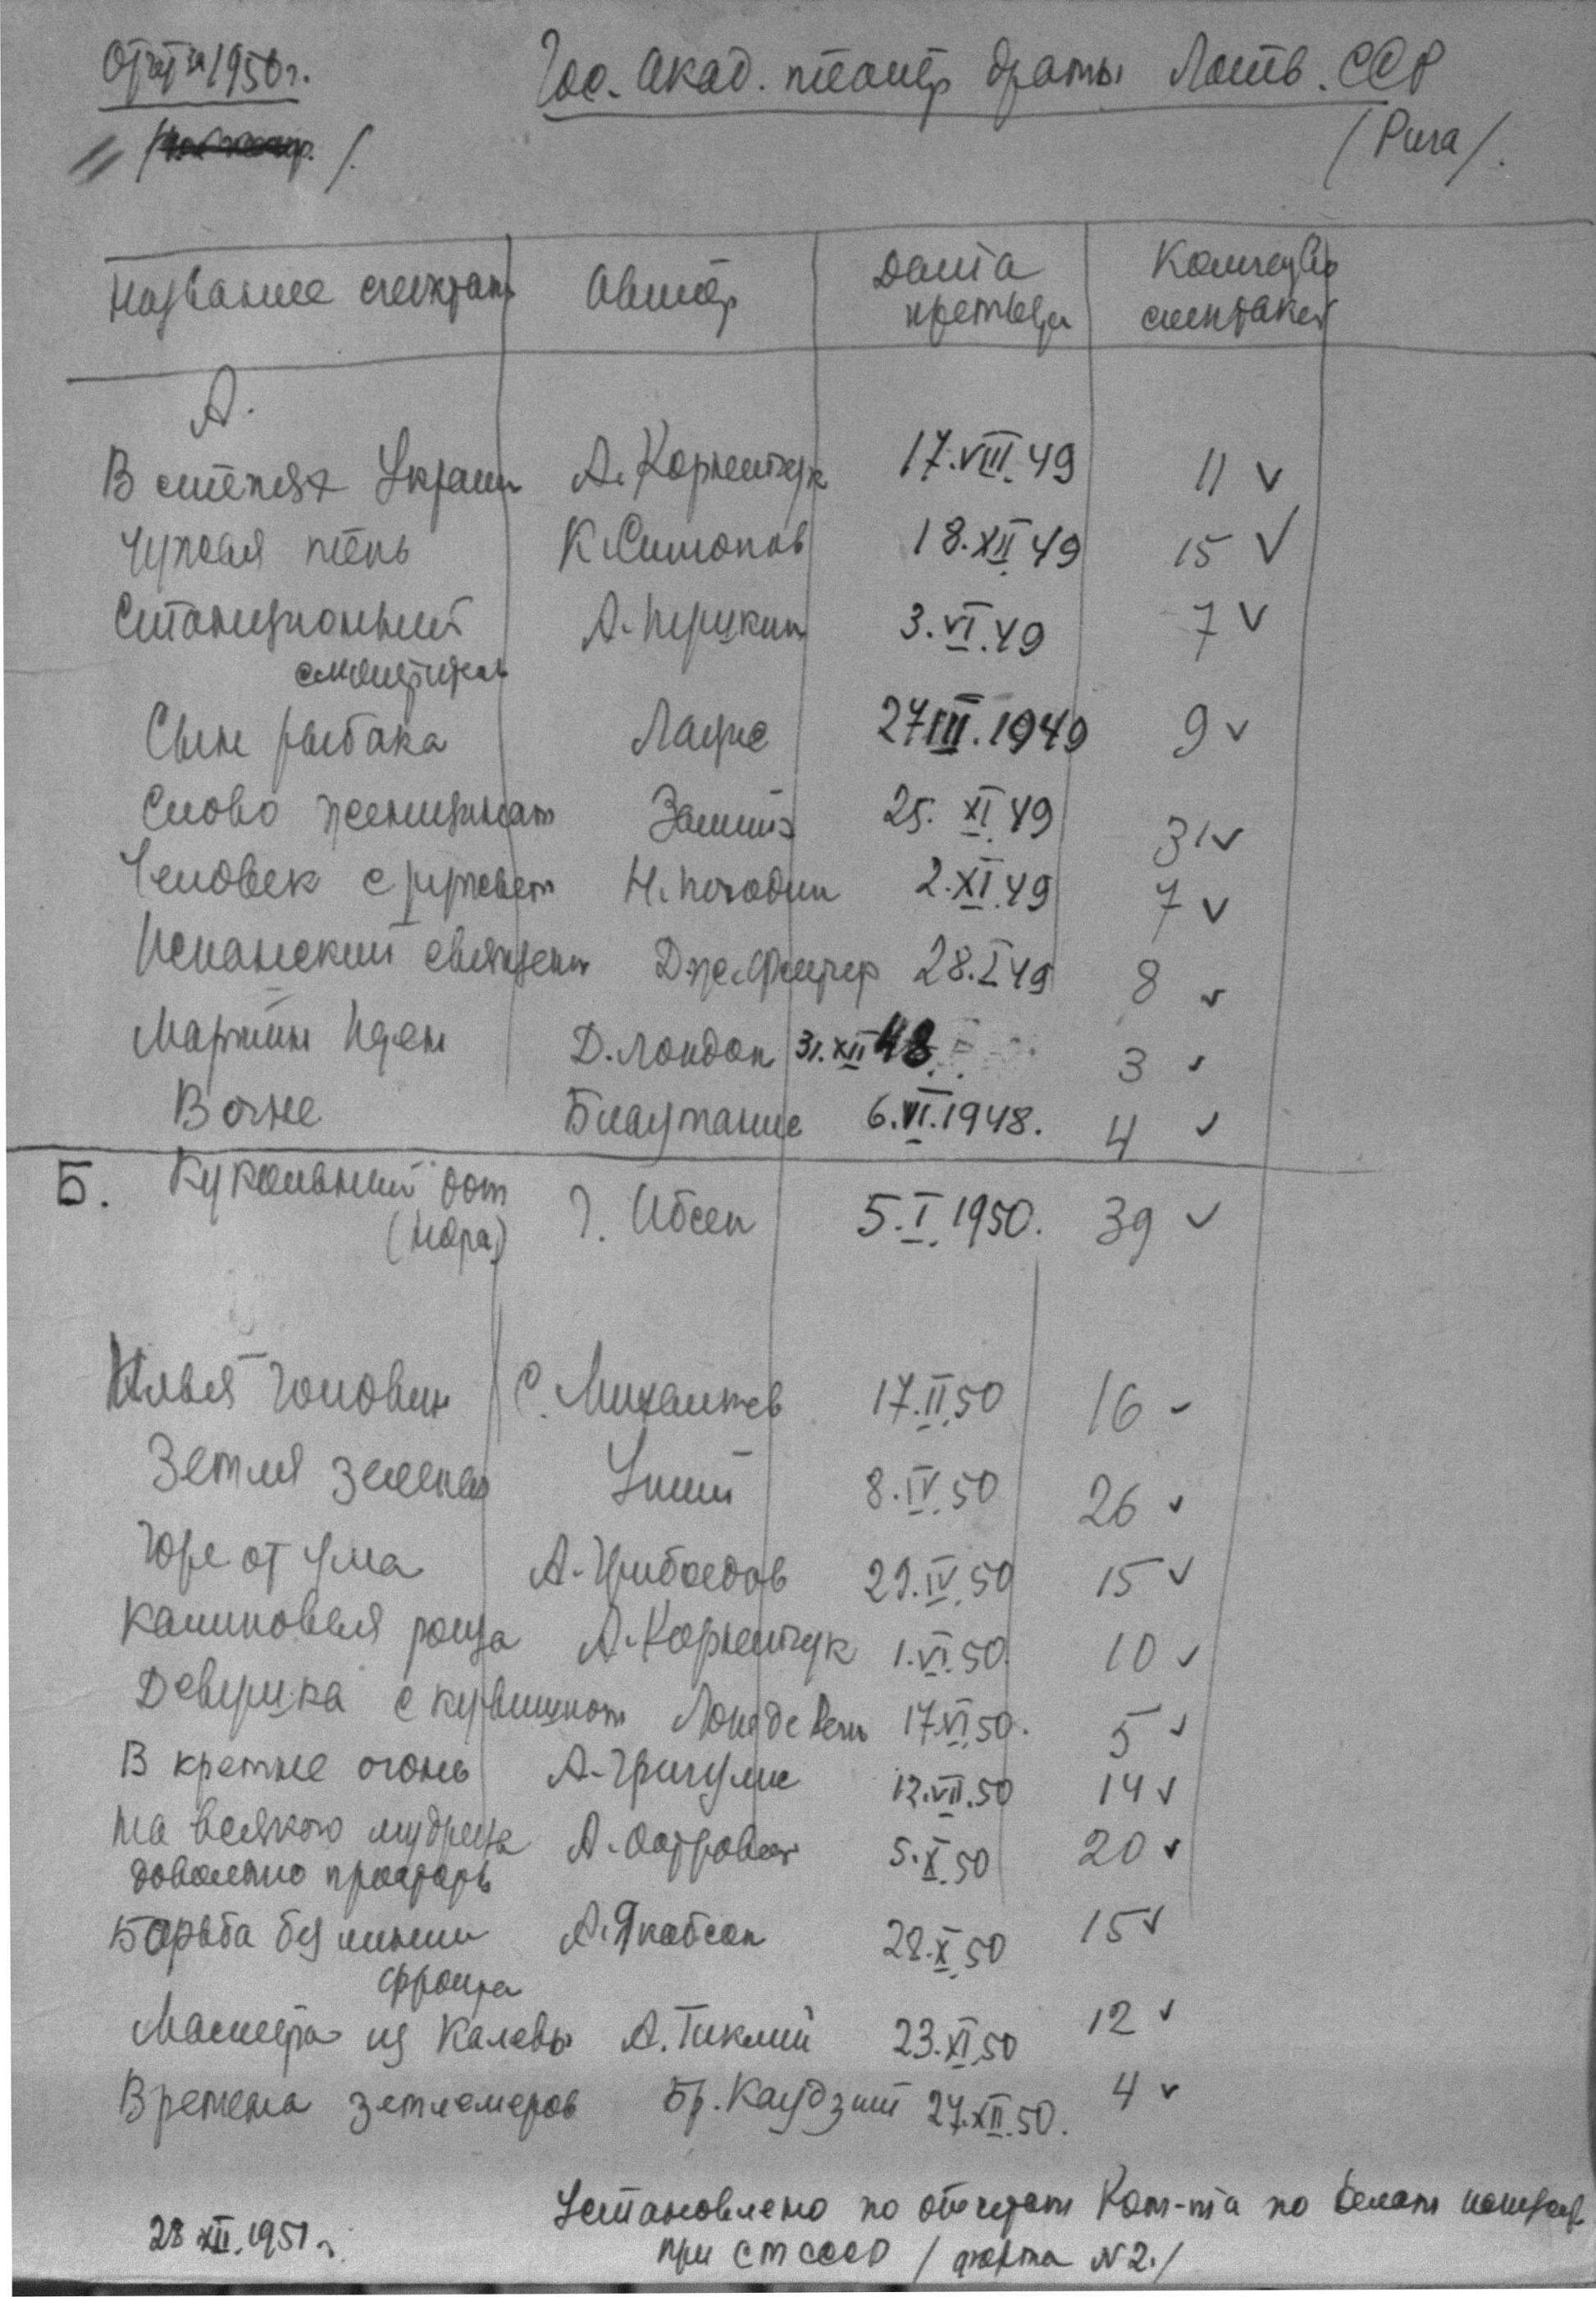 Отчет за 1950г.
Гос. Акад. театр драмы Латв. ССР
/Рига/.
Название спектакл Автор Дата премьеры Количество спектаклей
А.
В степях Украины А. Корнейчук 17.VIII.49 11 ✓
Чужая тень К. Симонов 18.XII.49 15 ✓
Станционный А. Пушкин 3.VI.49 7 ✓
смотритель
Сын рыбака Лацис 27 III.1949 9 ✓
Слово женщинам 25.XI.49 31 ✓
Человек с ружьем Н. Погодин 2.XI.49 7 ✓
Испанский священ Дж. Флетчер 28.I.49 8 ✓
Мартин Иден Д. Лондон 31.XII 48 3 ✓
В огне Блауманис 6.VI.1948. 4 ✓
Б. Кукольный дом Г. Ибсен 5.I.1950. 39 ✓
(Нора)
Илья Головин С. Михалков 17.II.50 16 ✓
Земля зеленая Упит 8.IV.50 26 ✓
Горе от ума А. Грибоедов 29.IV.50 15 ✓
Калиновая роща А. Корнейчук 1.VI.50. 10 ✓
Девушка с кувшином Лопе де Вега 17.VI.50. 5 ✓
В кремне огонь А. Григулис 12.VII.50 14 ✓
На всякого мудреца А. Островск 5.X.50 20 ✓
довольно простоты
Борьба без линии А. Якобсон 28.X.50 15 ✓
фронта
из Калевы А. Тиклый 23.XI.50 12 ✓
Времена землемеров Бр. Каудзит 27.XII.50. 4 ✓
Установлено по отчетам Ком-та по делам искусств
28 XII.1951 г. при СМ СССР / форма N 2./